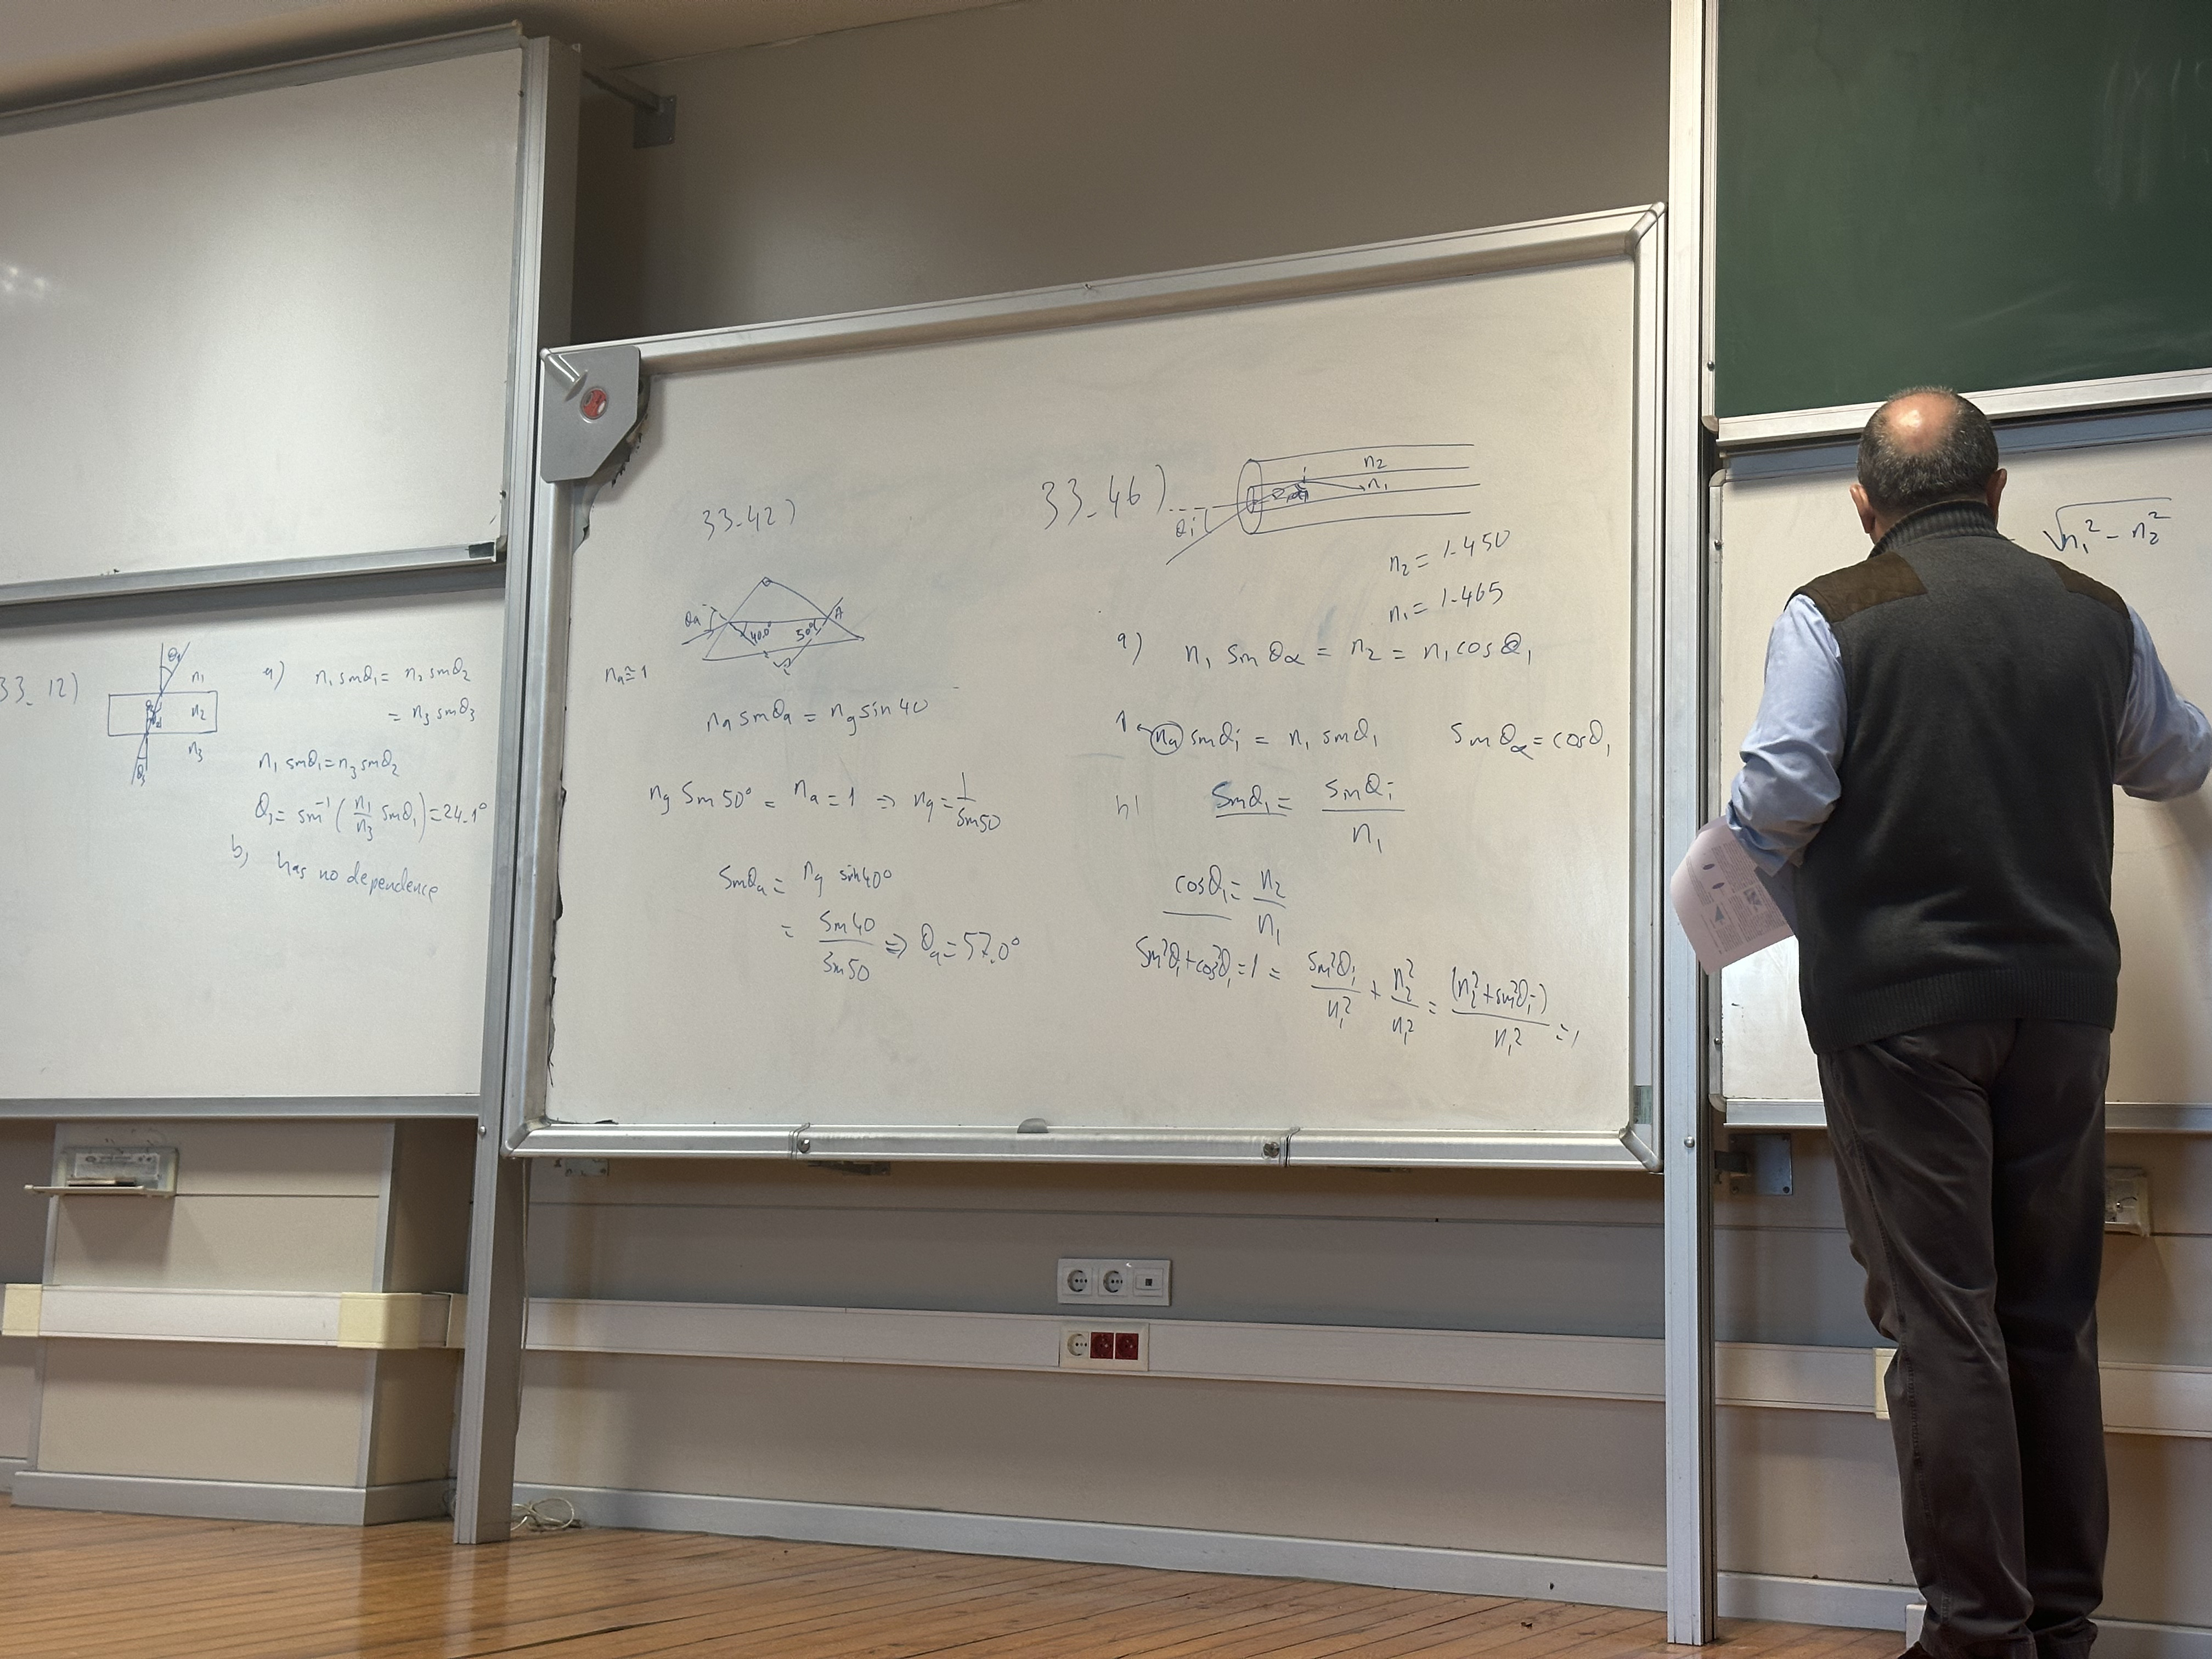 33-12)
θ1
n1
n2
n3
θ3
a) n1 sinθ1 = n2 sinθ2
= n3 sinθ3
n1 sinθ1 = n3 sinθ2
θ3 = sin⁻¹ ( n1/n3 sinθ1 ) = 24.1°
b) has no dependence
33-42)
θa
40.0°
50°
A
na ≅ 1
na sinθa = ng sin40
ng sin50° = na = 1 ⇒ ng = 1/sin50
sinθa = ng sin40°
= sin40/sin50 ⇒ θa = 57.0°
33-46)
θi
n2
n1
n2 = 1.450
n1 = 1.465
a) n1 sinθα = n2 = n1 cosθ1
1 ← na sinθi = n1 sinθ1 sinθα = cosθ1
sinθ1 = sinθi/n1
cosθ1 = n2/n1
sin²θ1 + cos²θ1 = 1 = sin²θi/n1² + n2²/n1² = (n2² + sin²θi)/n1² = 1
√n1² - n2²